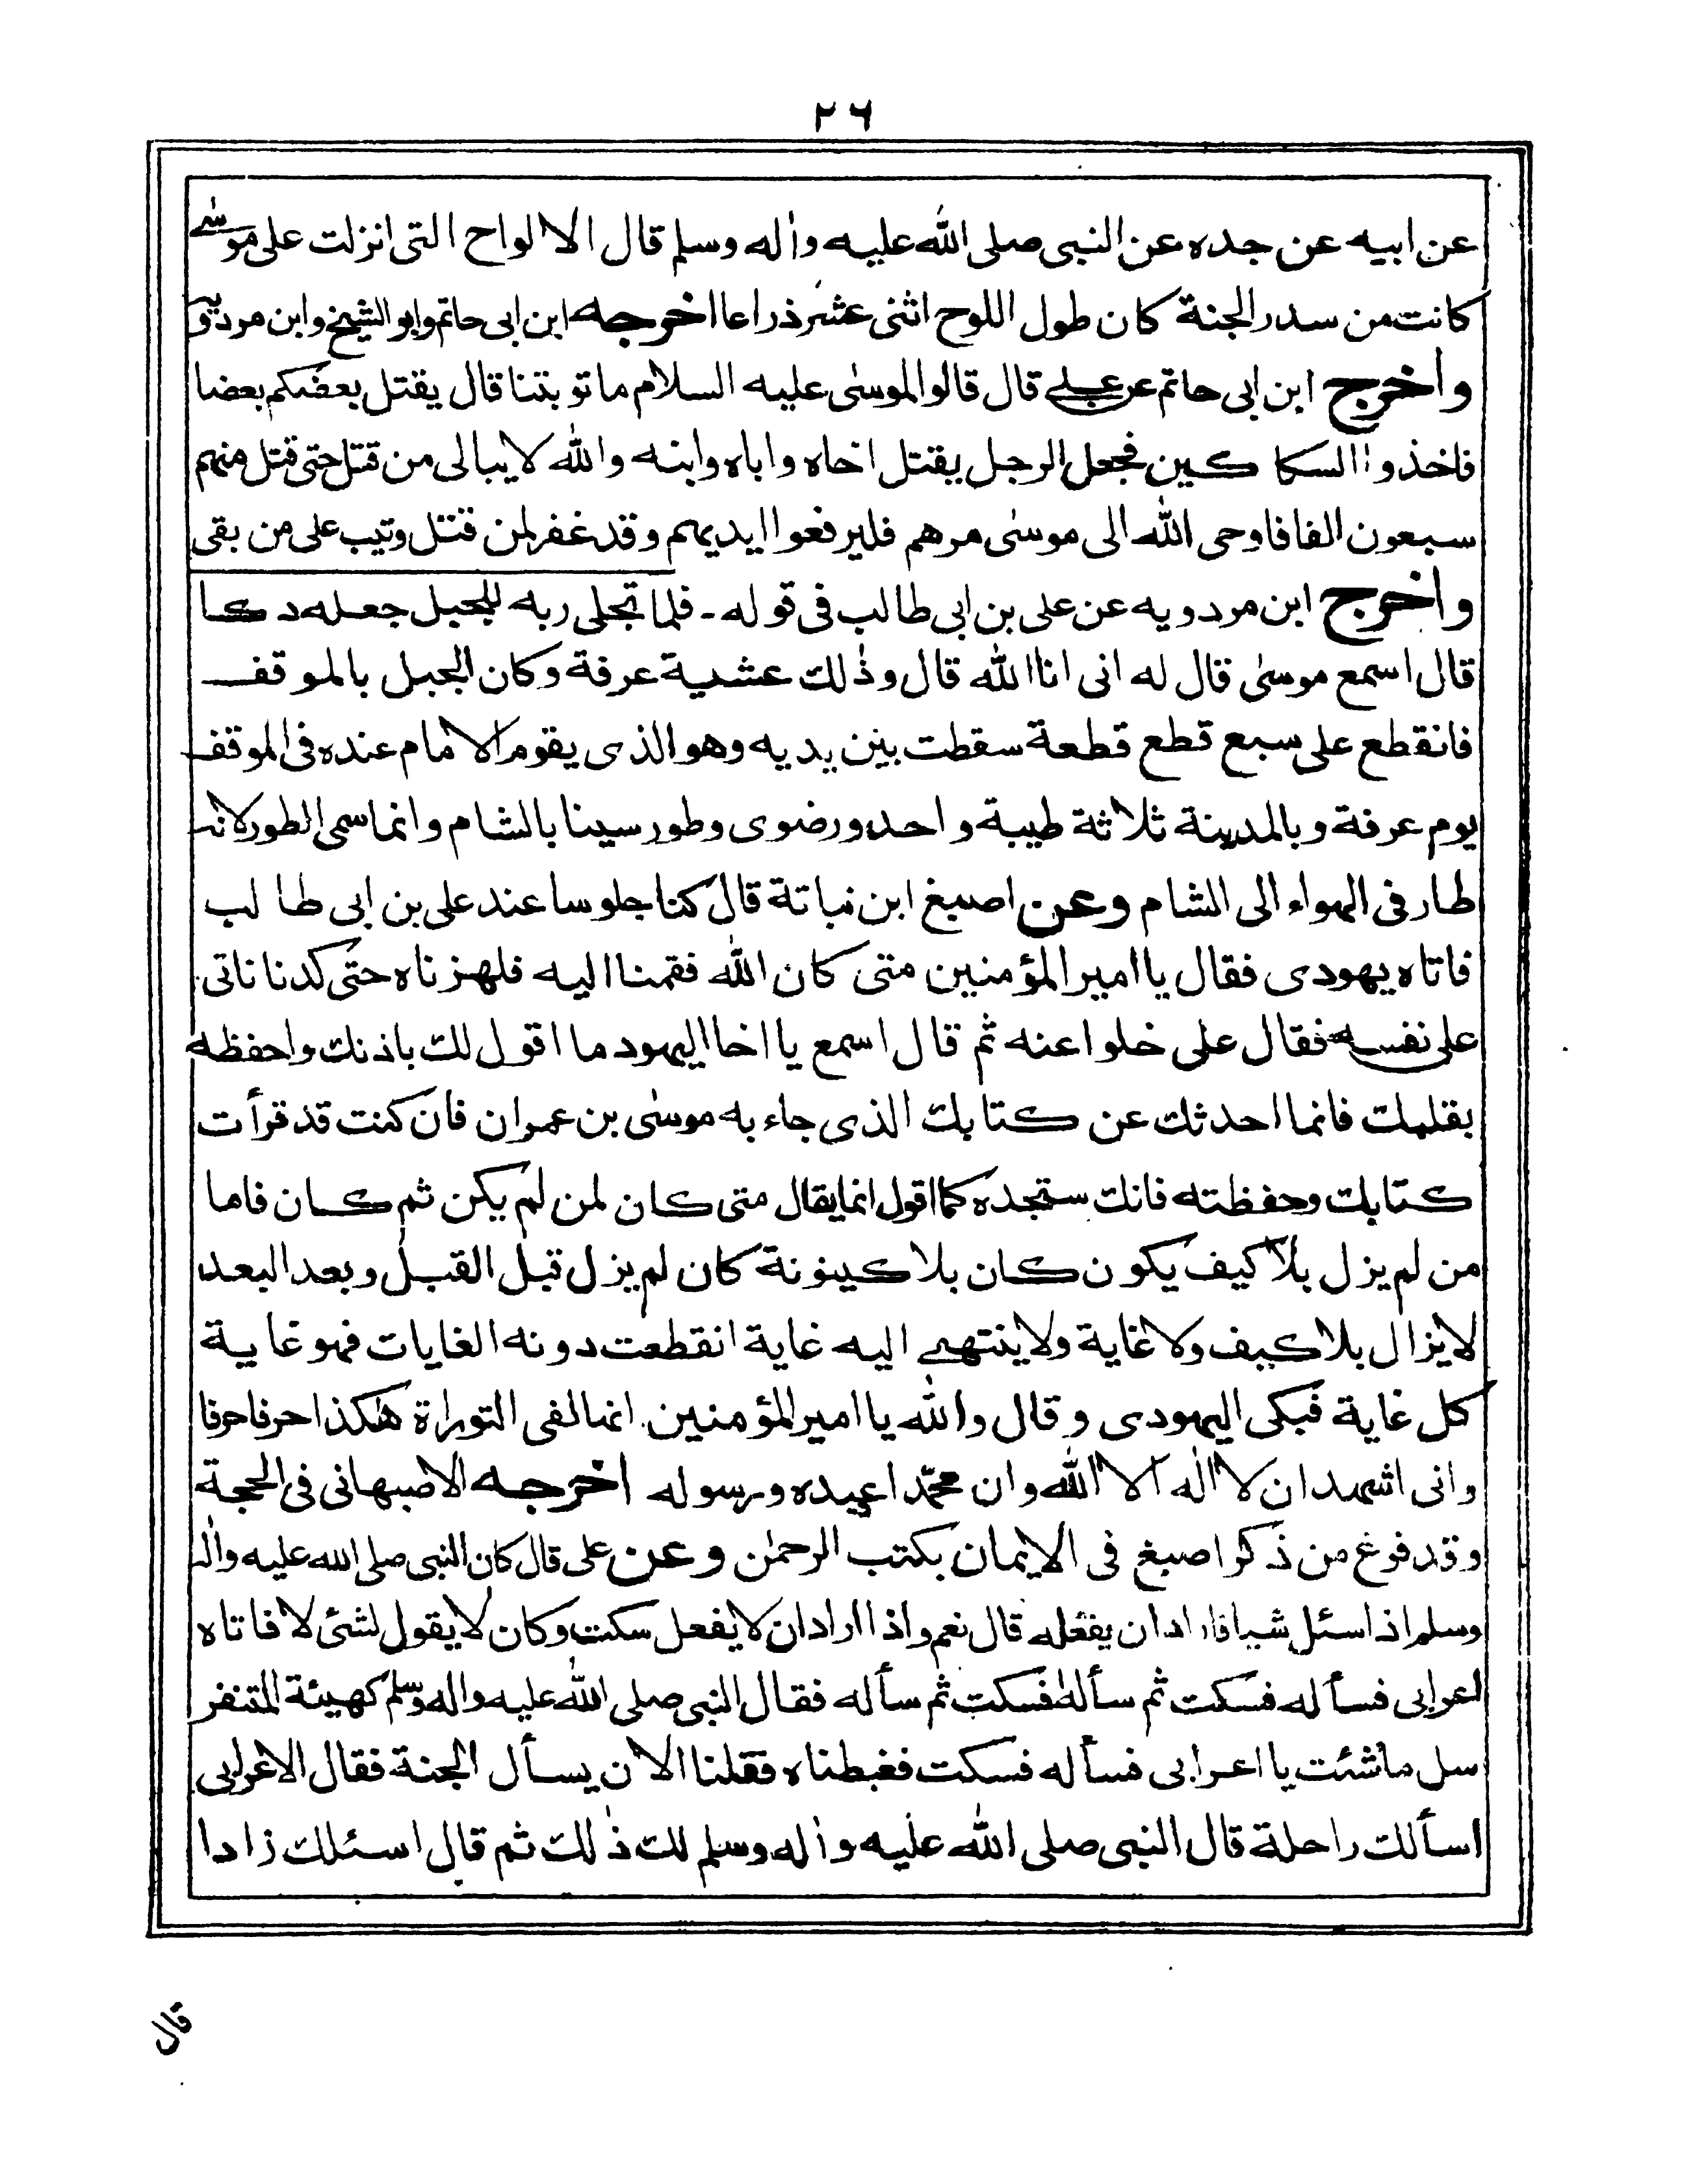 ٢٦
عن ابيه عن جده عن النبى صلى الله عليه واٰله وسلم قال الالواح التى انزلت على موسٰے
كانت من سدر الجنة كان طول اللوح اثنى عشر ذراعا اخرجه ابن ابى حاتم وابو الشيخ وابن مردويه
واخرج ابن ابى حاتم عن علے قال قالوا لموسٰى عليه السلام ما توبتنا قال يقتل بعضكم بعضا
فاخذوا السكاكين فجعل الرجل يقتل اخاه واباه وابنه والله لا يبالى من قتل حتى قتل منهم
سبعون الفا فاوحى الله الى موسٰى مرهم فليرفعوا ايديهم وقد غفر لمن قتل وتيب على من بقى
واخرج ابن مردويه عن على بن ابى طالب فى قوله ـ فلما تجلى ربه للجبل جعله دكا
قال اسمع موسٰى قال له انى انا الله قال وذٰلك عشية عرفة وكان الجبل بالموقف
فانقطع على سبع قطع قطعة سقطت بين يديه وهو الذى يقوم الامام عنده فى الموقف
يوم عرفة وبالمدينة ثلاثة طيبة واحد ورضوى وطور سينا بالشام وانما سمى الطور لانه
طار فى الهواء الى الشام وعن اصبغ ابن نباتة قال كنا جلوسا عند على بن ابى طالب
فاتاه يهودى فقال يا امير المؤمنين متى كان الله فقمنا اليه فلهزناه حتى كدنا ناتى
على نفسه فقال على خلوا عنه ثم قال اسمع يا اخا اليهود ما اقول لك باذنك واحفظه
بقلبك فانما احدثك عن كتابك الذى جاء به موسٰى بن عمران فان كنت قد قرأت
كتابك وحفظته فانك ستجده كما اقول انما يقال متى كان لمن لم يكن ثم كان فاما
من لم يزل بلا كيف يكون كان بلا كينونة كان لم يزل قبل القبل وبعد البعد
لا يزال بلا كيف ولا غاية ولا ينتهے اليه غاية انقطعت دونه الغايات فهو غاية
كل غاية فبكى اليهودى وقال والله يا امير المؤمنين انها لفى التوراة هٰكذا حرفا حرفا
وانى اشهد ان لا اله الا الله وان محمّدا عبده ورسوله اخرجه الاصبهانى فى الحجة
وقد فرغ من ذكر اصبغ فى الايمان بكتب الرحمٰن وعن على قال كان النبى صلى الله عليه واٰله
وسلم اذا سئل شيا فاراد ان يفعله قال نعم واذا اراد ان لا يفعل سكت وكان لا يقول لشئ لا فاتاه
اعرابى فسأله فسكت ثم سأله فسكت ثم سأله فقال النبى صلى الله عليه واله وسلم كهيئة المتنفر
سل ما شئت يا اعرابى فسأله فسكت فغبطناه فقلنا الان يسأل الجنة فقال الاعرابى
اسألك راحلة قال النبى صلى الله عليه واٰله وسلم لك ذٰلك ثم قال اسئلك زادا
قال